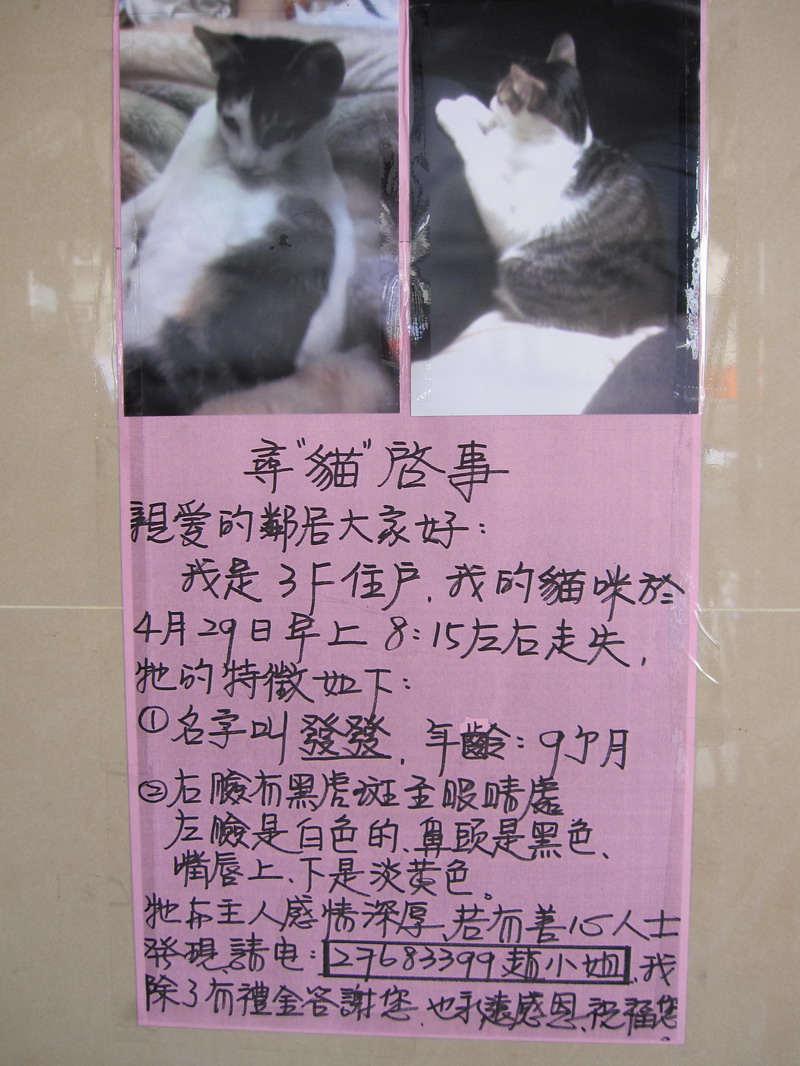 尋"貓"啓事
親爱的鄰居大家好：
我是3F住户，我的貓咪於
4月29日早上8:15左右走失，
牠的特徵如下：
①名字叫發發，年齡：9个月
②右臉有黑虎斑至眼睛處
左臉是白色的、鼻頭是黑色、
嘴唇上、下是淡黄色。
牠与主人感情深厚，若有善心人士
發現請电：27683399趙小姐，我
除了有禮金答謝您，也永遠感恩、祝福您。